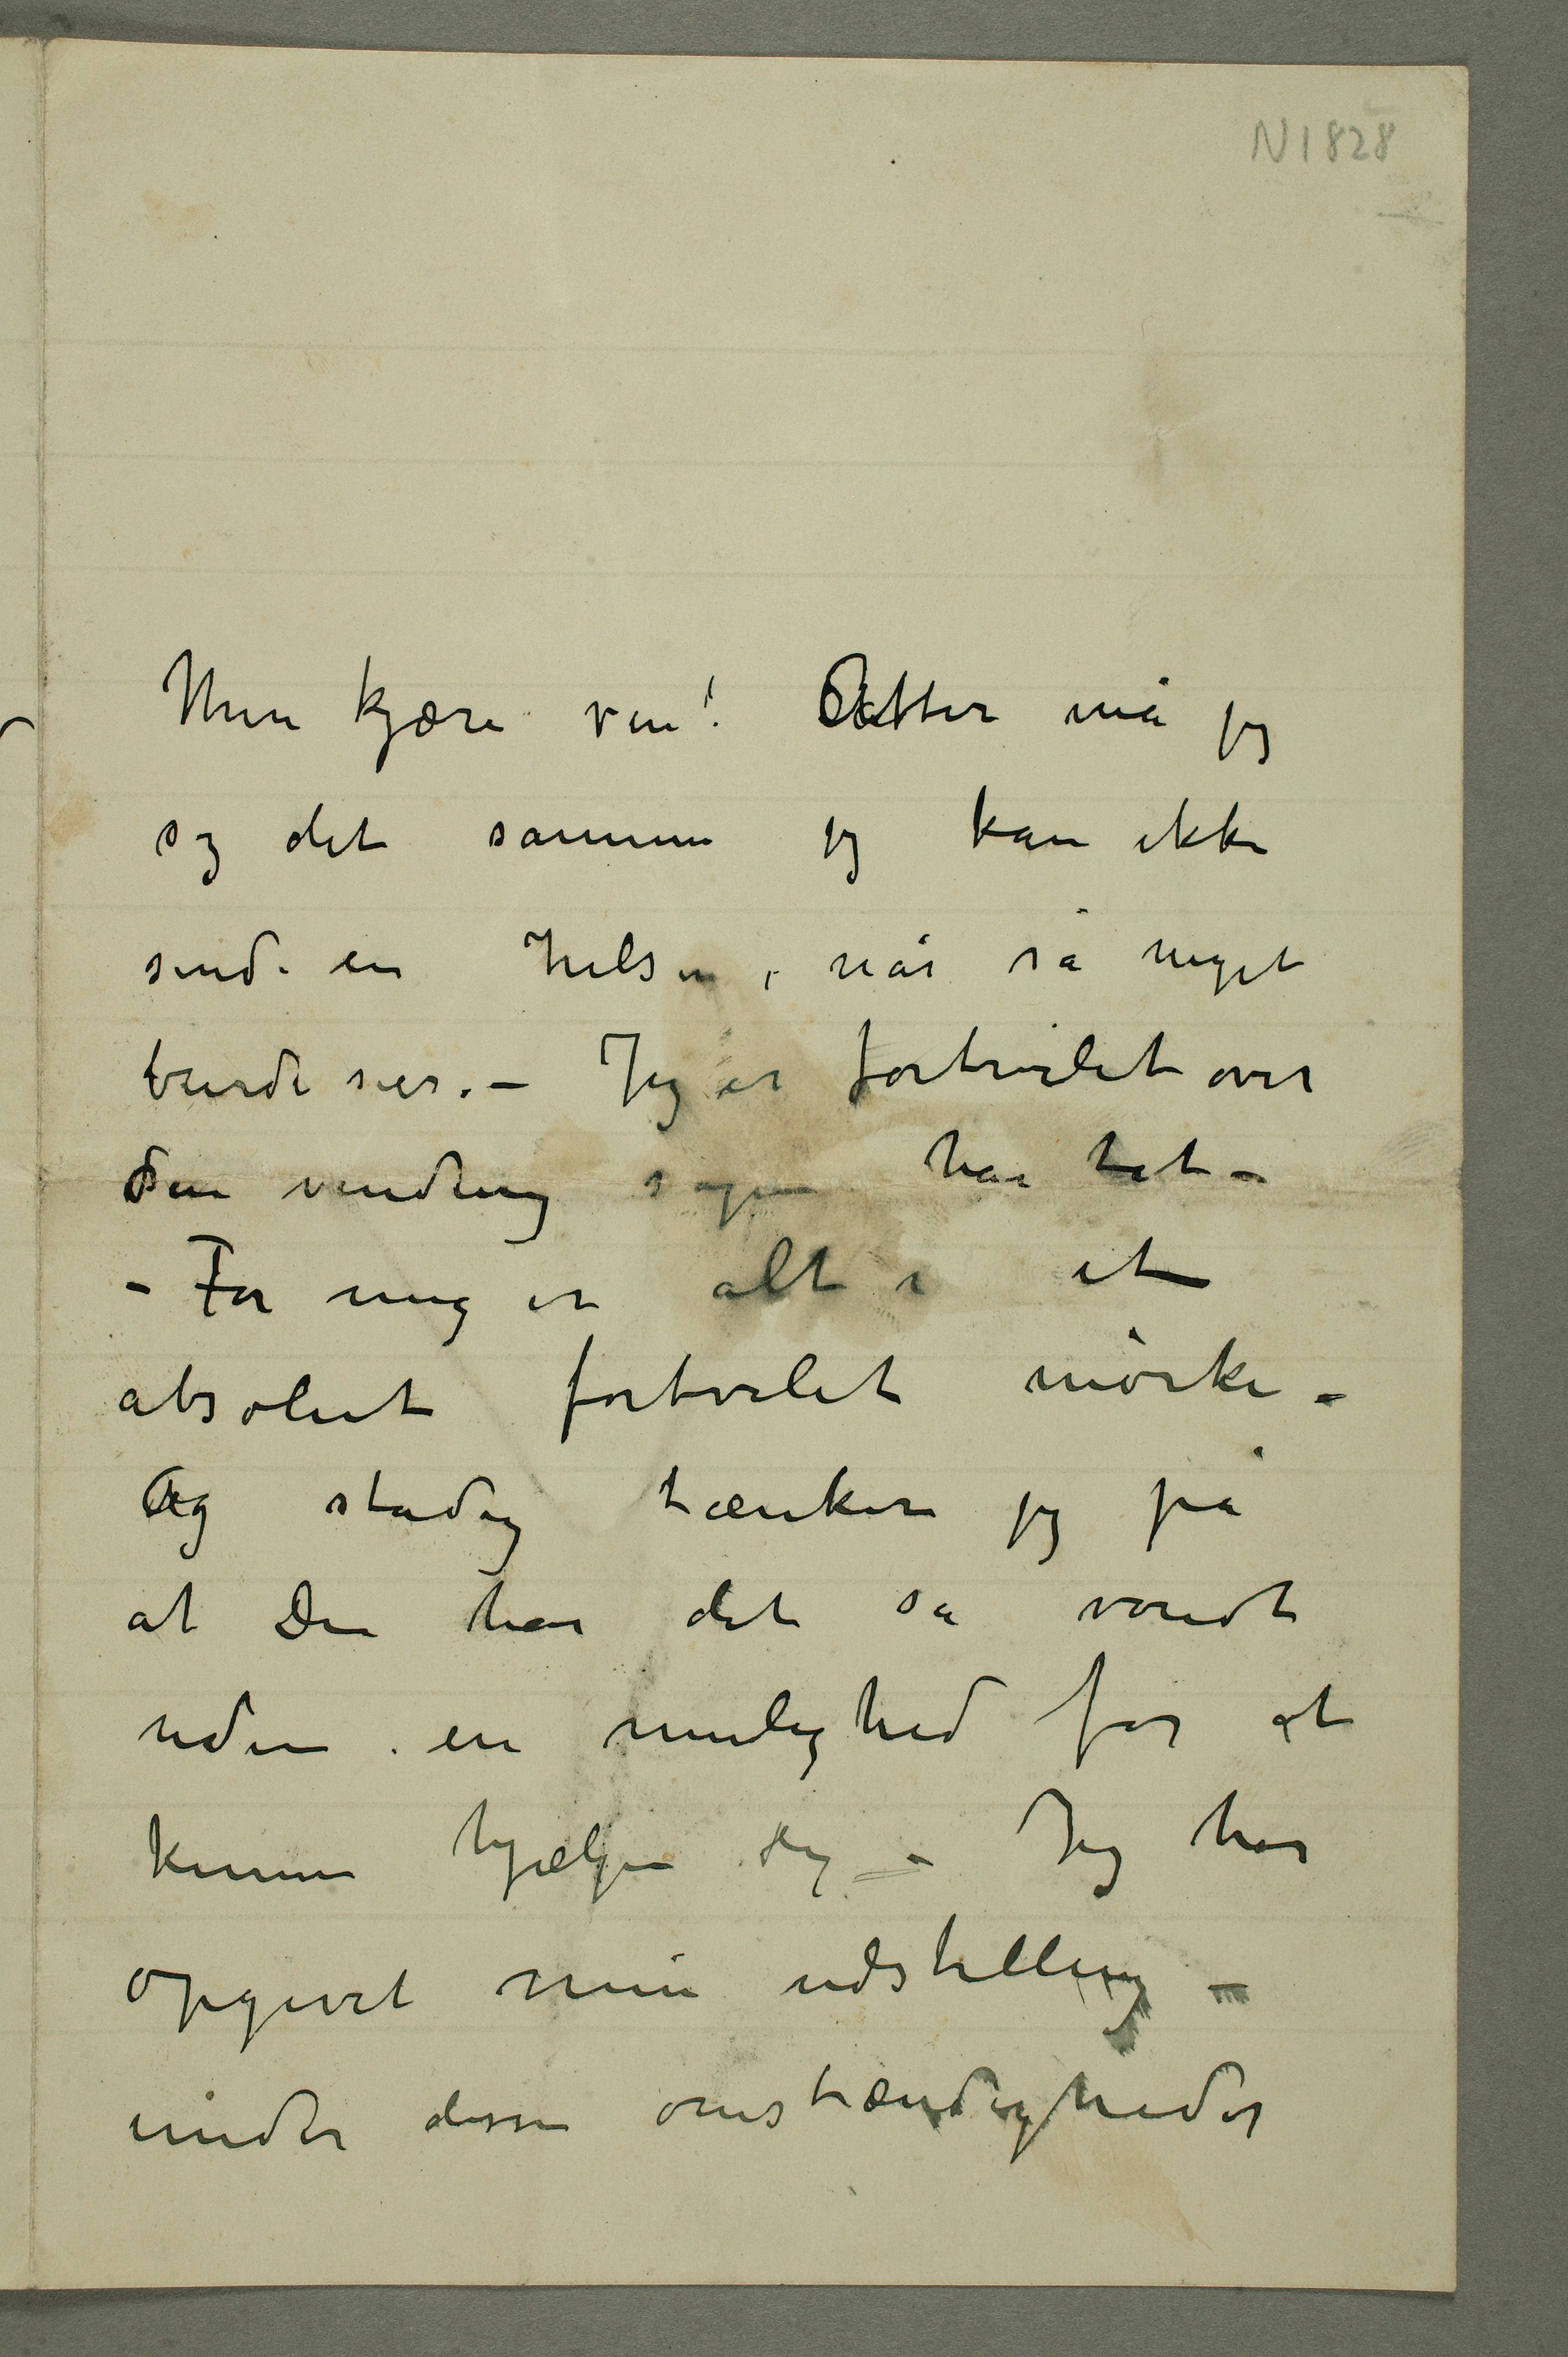 N1828
Min kjære ven! Atter må jeg
sig det samme jeg kan ikke
sende en hilsen, når så meget
burde sies. – Jeg er fortvilet over
den vending sagen har tat –
– For mig er alt i et
absolut fortvilet mörke –
Og stadig tænker jeg på
at Du har det så vondt
uden en mulighed for at
kunne hjælpe dig – Jeg har
opgivet min udstilling –
under disse omstændigheder